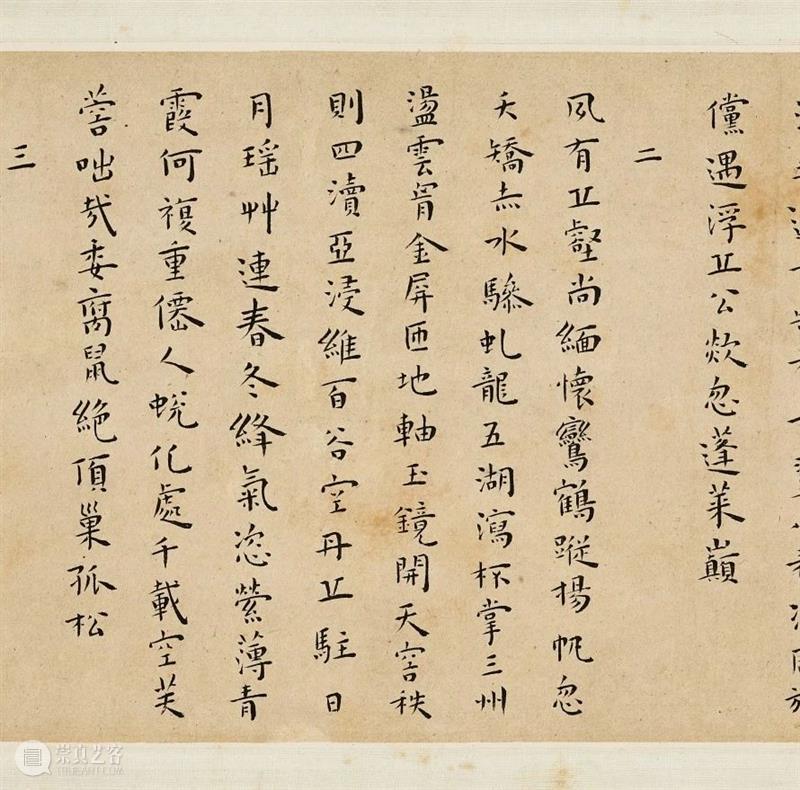 儻遇浮丘公欻忽蓬萊巔
二
夙有丘壑尚緬懷鸞鶴蹤揚帆忽
夭矯赤水驂虬龍五湖瀉杯掌三州
盪雲胷金屏匝地軸玉鏡開天容秩
則四瀆亞浸維百谷空丹丘駐日
月瑤艸連春冬絳氣恣縈薄青
霞何複重僊人蛻化處千載空芙
蓉咄哉委腐鼠絕頂巢孤松
三
崇真艺客